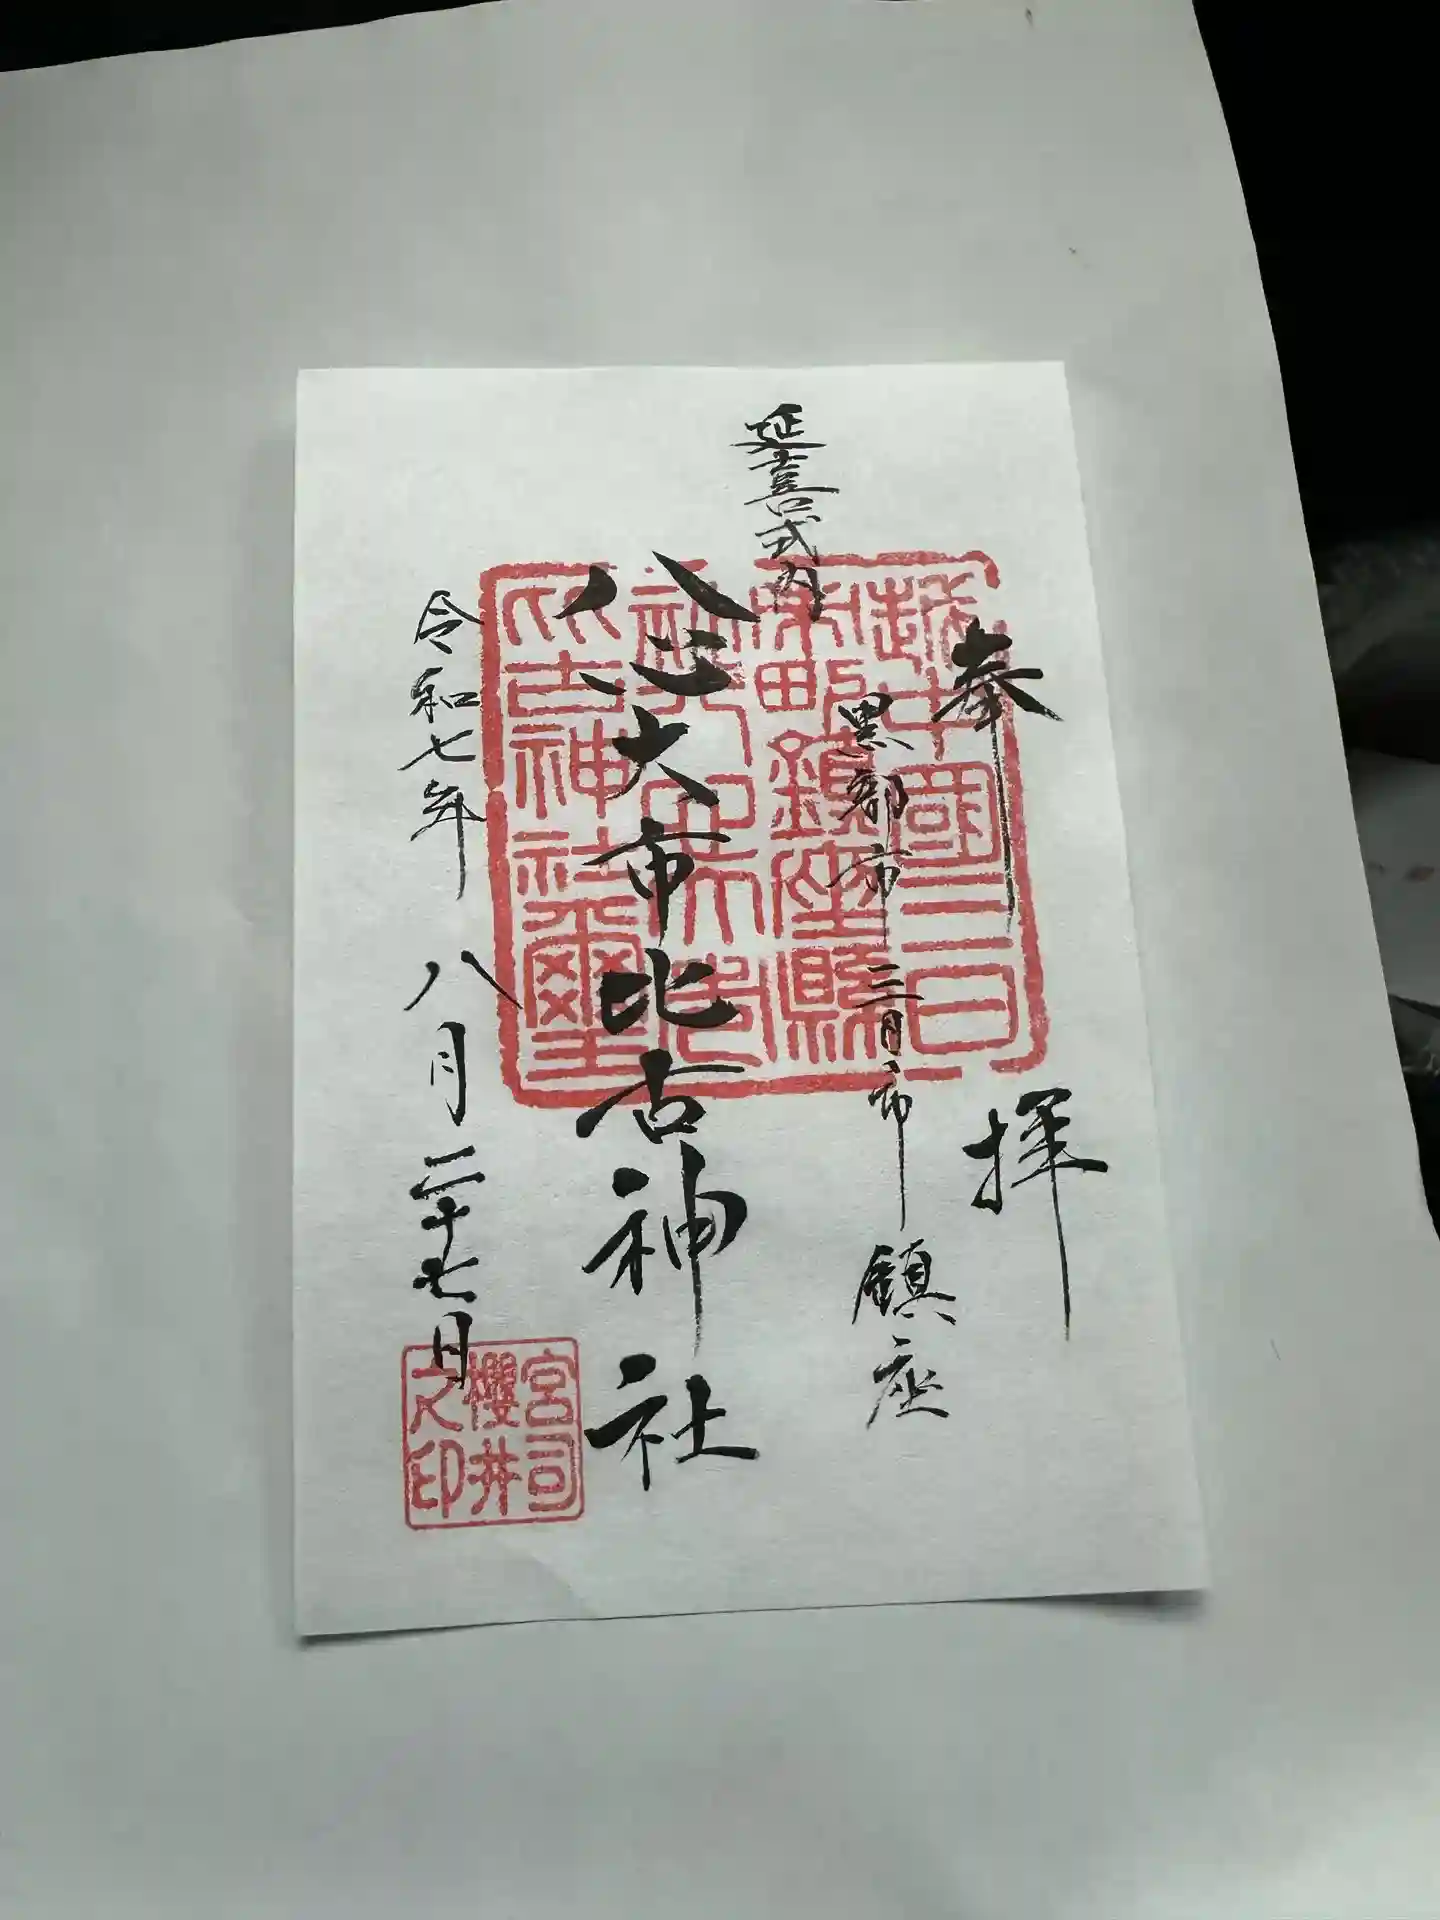 奉拝
黒部市三日市鎮座
延喜式内
八心大市比古神社
令和七年八月二十七日
越中國三日
市町鎮座縣
社八心大市
比古神社璽
宮司
櫻井
之印